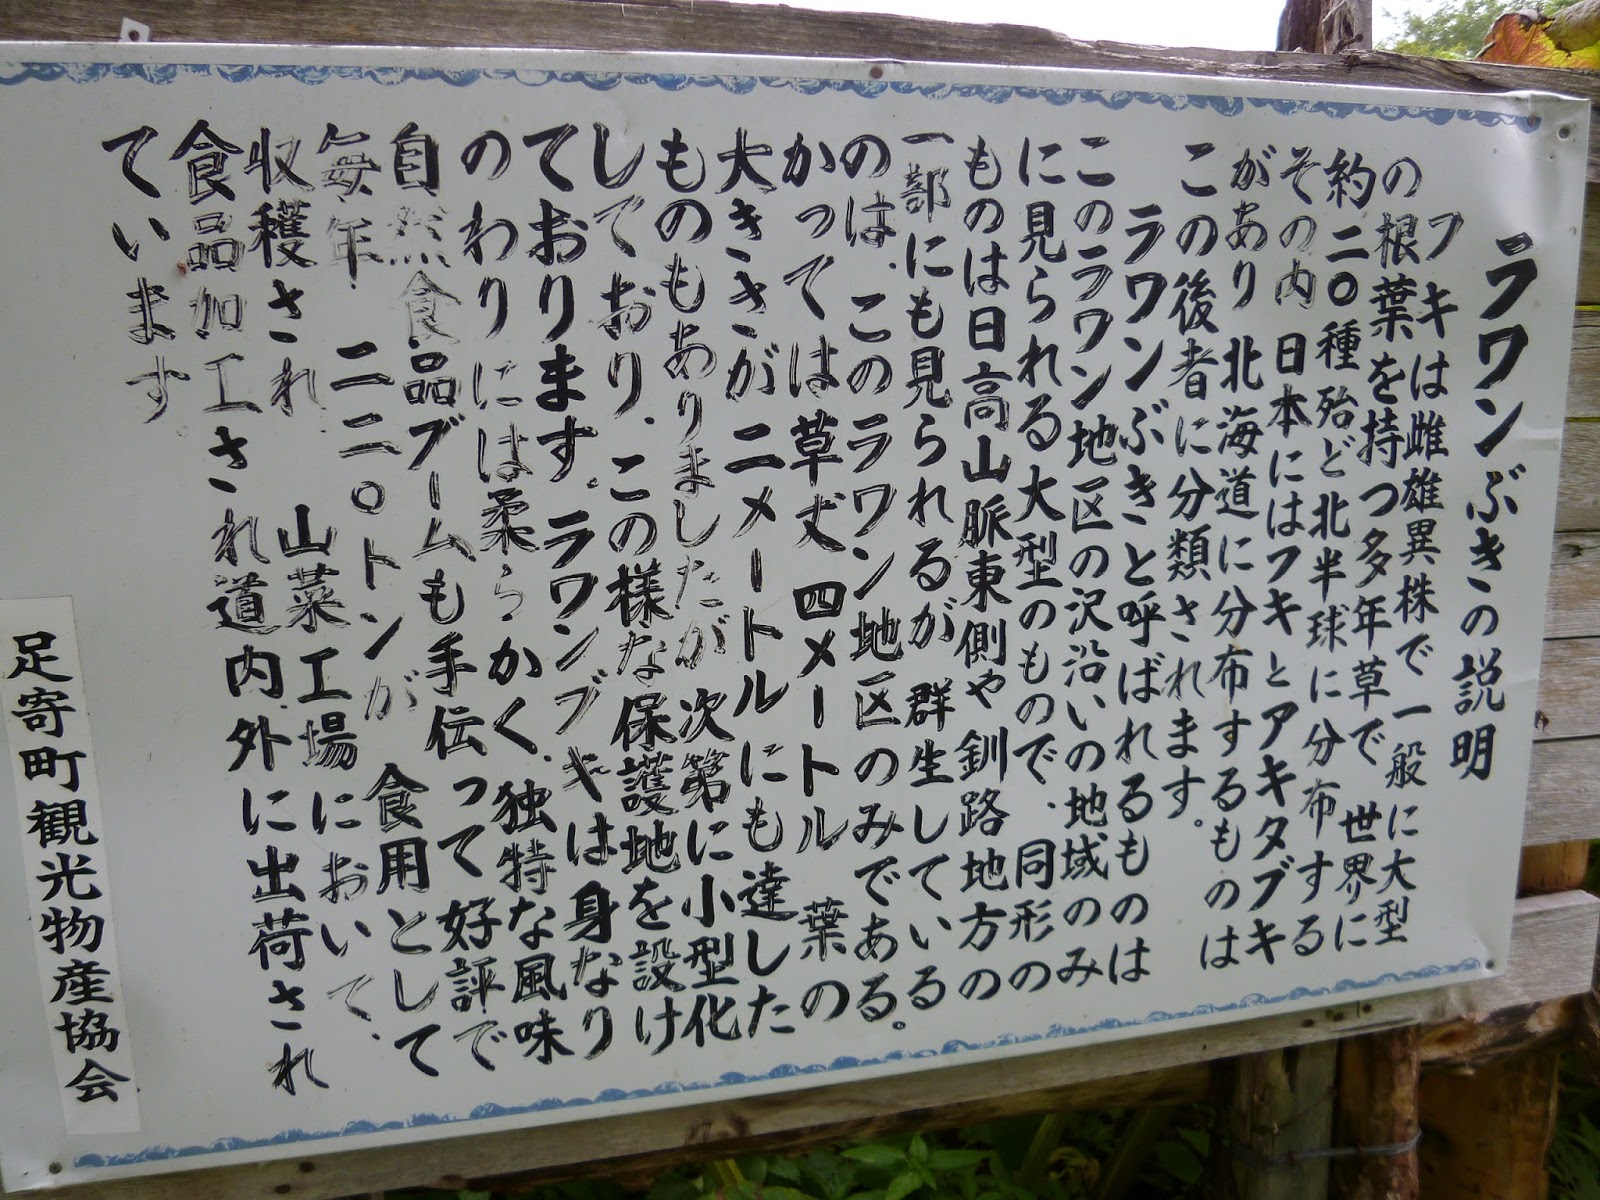 ラワンぶきの説明
フキは雌雄異株で一般に大型
の根葉を持つ多年草で 世界に
約二〇種殆ど北半球に分布する
その内 日本にはフキとアキタブキ
があり 北海道に分布するものは
この後者に分類されます。
ラワンぶきと呼ばれるものは
このラワン地区の沢沿いの地域のみ
に見られる大型のもので、同形の
ものは日高山脈東側や釧路地方の
一部にも見られるが 群生している
のは、このラワン地区のみである。
かっては草丈 四メートル 葉の
大きさが 二メートルにも達した
ものもありましたが 次第に小型化
しており、この様な保護地を設け
ております。ラワンブキは身なり
のわりには柔らかく、独特な風味
自然食品ブームも手伝って 好評で
毎年 二二〇トンが 食用として
収穫され 山菜工場において、
食品加工され道内、外に出荷され
ています
足寄町観光物産協会